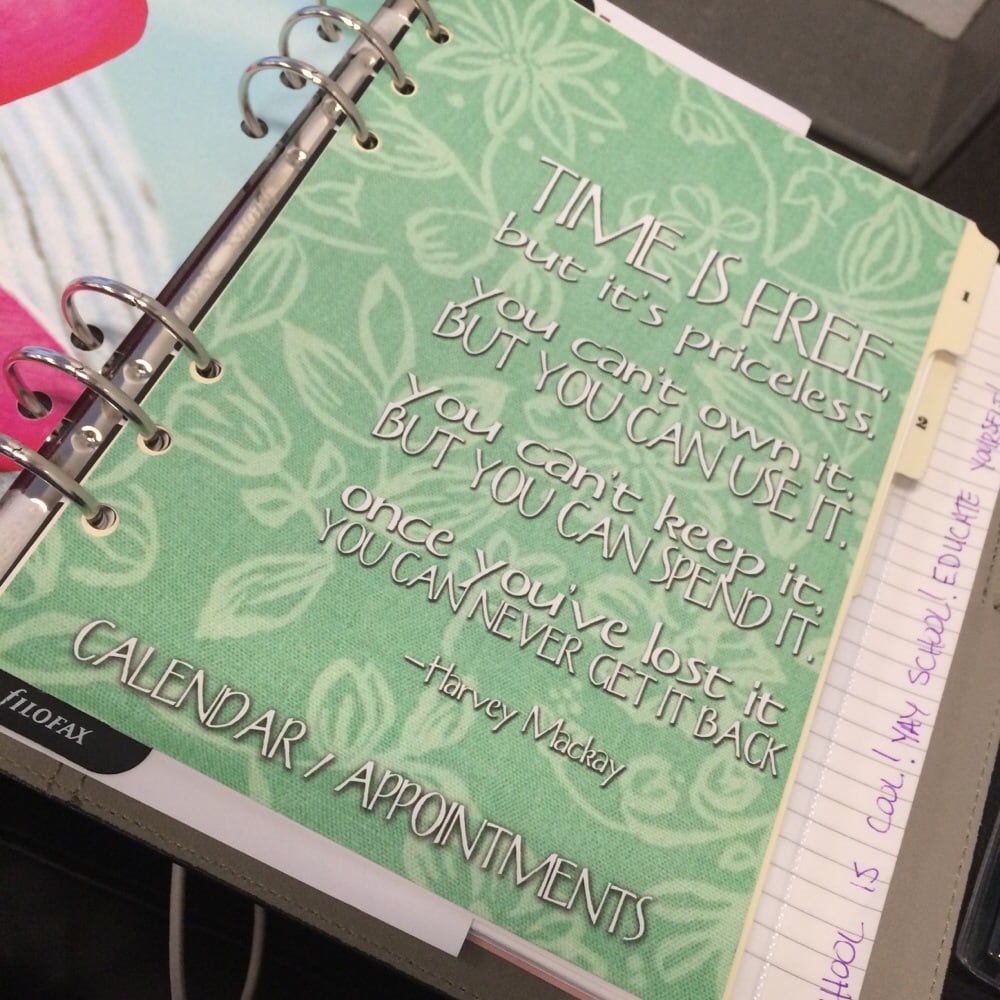 TIME IS FREE,
but it's priceless.
you can't own it,
BUT YOU CAN USE IT.
you can't keep it,
BUT YOU CAN SPEND IT.
once you've lost it
YOU CAN NEVER GET IT BACK
—Harvey Mackay
CALENDAR / APPOINTMENTS
fILOFAX
1
2
HOOL IS COOL! YAY SCHOOL! EDUCATE YOURSELF!